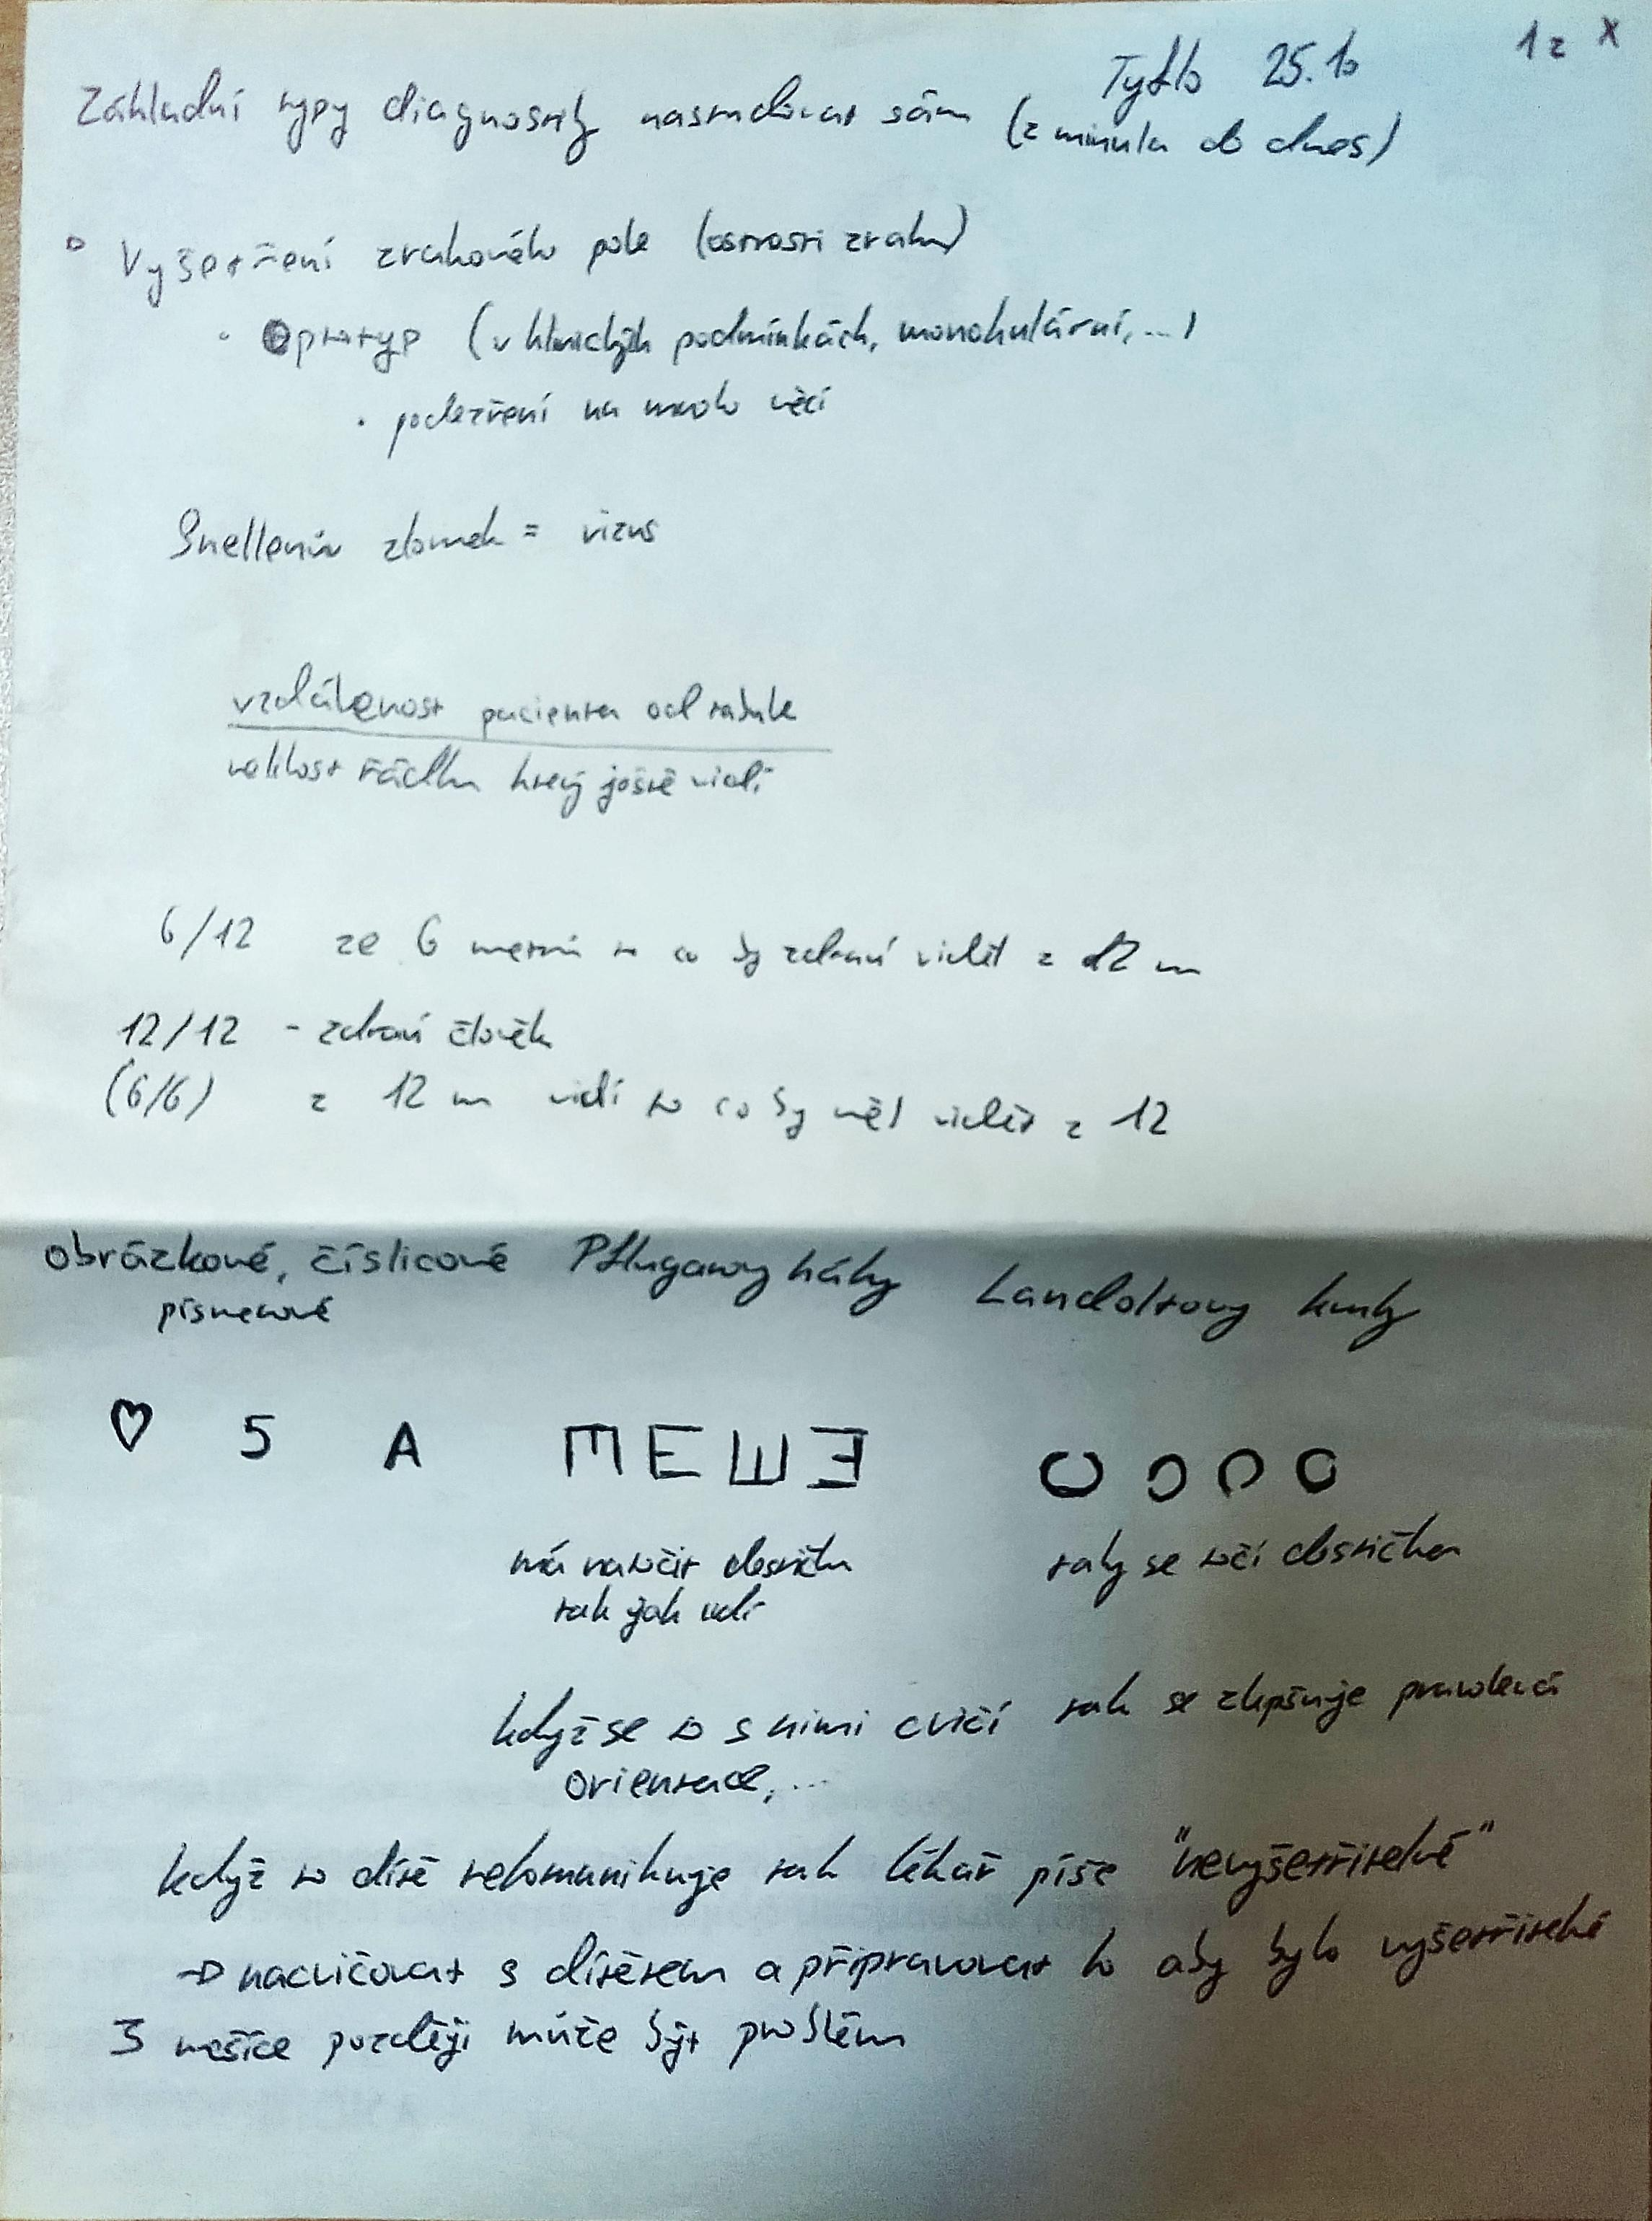 Tyflo 25.10
1 z X
Základní typy diagnostiky nastudovat sám (z minula do dnes)
Vyšetření zrakového pole (ostrosti zraku)
• Optotyp (v klinických podmínkách, monokulární, ...)
• podezření na mnoho věcí
Snellenův zlomek = vizus
vzdálenost pacienta od tabule
velikost řádku který ještě vidí
6/12 ze 6 metrů to co by zdraví viděl z 12 m
12/12 - zdraví člověk
(6/6) z 12 m vidí to co by měl vidět z 12
obrázkové, číslicové Pflugarovy háky Landoltovy kruhy
písmenové
♡ 5 A E E E E C C C C
má natočit destičku taky se točí destička
tak jak vidí
když se to s nimi cvičí tak se zlepšuje pravolevá
orientace, ...
když to dítě nekomunikuje tak lékař píše "nevyšetřitelné"
→ nacvičovat s dítětem a připravovat ho aby bylo vyšetřitelné
3 měsíce později může být problém